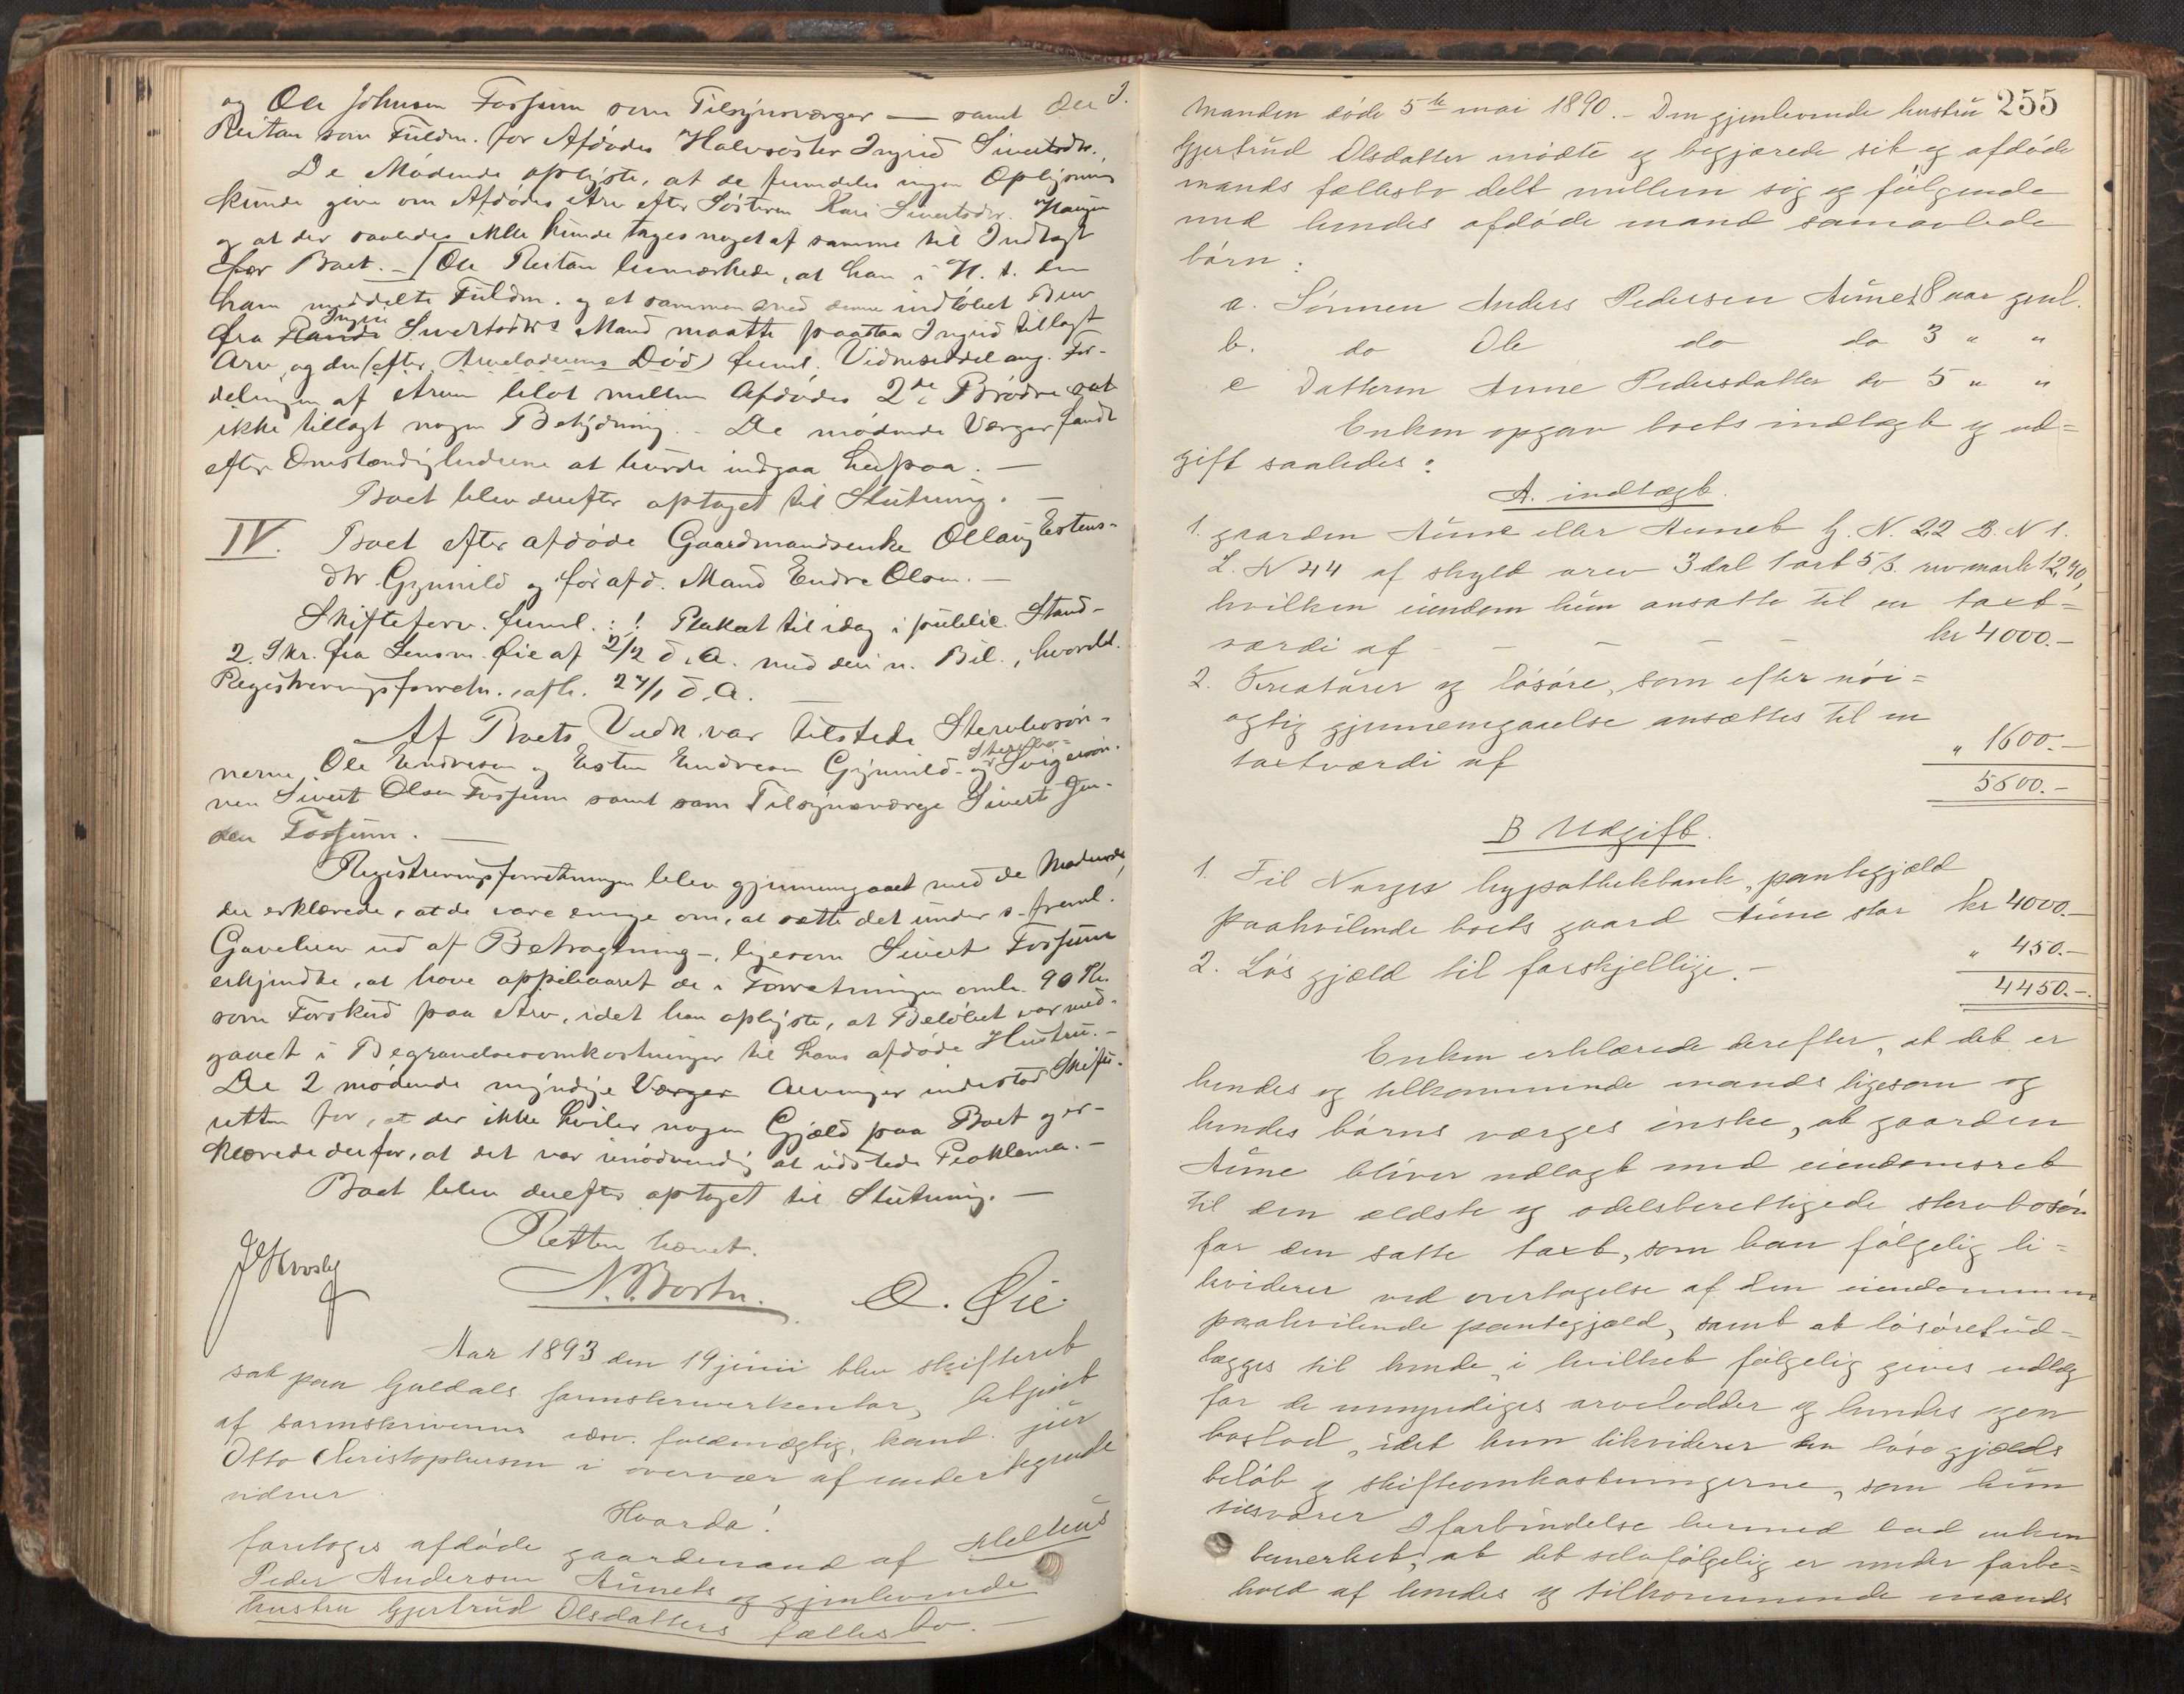 og Ole Johnsen Fossum som Tilsynsværger — samt Ole J.
Reitan som Fuldm. for Afdødes Halvsøster Ingrid Sivertsdtr.
De Mødende oplyste, at de fremdeles ingen Oplysning
kunde give om Afdødes Arv efter Søsteren Kari Sivertsdtr. Haugen
og at der saaledes ikke kunde tages noget af samme til Indtægt
for Boet. — Ole Reitan bemærkede, at han i H. t. den
ham meddelte Fuldm. og et sammen med denne indløbet Brev
fra Ingrid Sivertsdtrs Mand maatte paastaa Ingrid tillagt
Arv, og den (efter Arveladerens Død) freml. Vidneseddel ang. For-
delingen af Arven blot mellem Afdødes 2de Brødre sat
ikke tillagt nogen Betydning. — De mødende Værger fandt
efter Omstændighederne at burde indgaa herpaa. —
Boet blev derefter optaget til Slutning. —
IV. Boet efter afdøde Gaardmandsenke Ollaug Estens-
dtr Gynnild og før afd. Mand Endre Olsen. —
Skifteforv. freml.: 1. Plakat til idag i public. Stand-
2. Skr. fra Lensm. Øie af 2/2 d. A. med den n. Bil., hvorbl.
Registreringsforretn. afh. 27/1 d. A. —
Af Boets Vedk. var tilstede Sterbosøn-
nerne Ole Endresen og Esten Endresen Gynnild og Sterbo-Svigersøn-
nen Sivert Olsen Fossum samt som Tilsynsværge Sivert Jen-
sen Fossum. —
Registreringsforretningen blev gjennemgaaet med de Mødende,
der erklærede, at de vare enige om, at sætte det under s. freml.
Gavebrev ud af Betragtning —, ligesom Sivert Fossum
erkjendte, at have oppebaaret de i Forretningen omh. 90 Kr.
som Forskud paa Arv, idet han oplyste, at Beløbet var med-
gaaet i Begravelsesomkostninger til hans afdøde Hustru. —
De 2 mødende myndige Værger Arvinger indestod Skifte-
retten for, at der ikke hviler nogen Gjæld paa Boet og er-
klærede derfor, at det var unødvendig at udstede Proklama. —
Boet blev derefter optaget til Slutning. —
Retten hævet.
N. Bortn. O. Øie
Aar 1893 den 19 juni blev skifteret
sat paa Guldals sorenskriverkontor, betjent
af sorenskriverens edsv. fuldmægtig, kand. jur
Otto Christophersen i overvær af undertegnede
vidner.
Hvorda!
foretoges afdøde gaardmand af Melhus
Peder Andersen Aunets og gjenlevende
hustru Gjertrud Olsdatters fællesbo. —
255
Manden døde 5te mai 1890. — Den gjenlevende hustru
Gjertrud Olsdatter mødte og begjærede sit og afdøde
mands fællesbo delt mellem sig og følgende
med hendes afdøde mand samavlede
børn:
a. Sønnen Anders Pedersen Aunet 8 aar gml.
b. do Ole do do 3 " "
c Datteren Anne Pedersdatter do 5 " "
Enken opgav boets indtægt og ud=
gift saaledes:
A. indtægt.
1. gaarden Aune eller Aunet G. N. 22 B. N 1.
L. N 44 af skyld arev 3 dal 1 ort 5 s. rev mark 12,90,
hvilken eiendom hun ansatte til en taxt=
værdi af — — — — kr 4000.—
2. Kreaturer og løsøre, som efter nøi=
agtig gjennemgaaelse ansættes til en
taxtværdi af " 1600.—
5600.—
B Udgift.
1. Til Norges hypothekbank, pantegjæld
paahvilende boets gaard Aune stor kr 4000.—
2. Løs gjæld til forskjellige. — " 450.—
4450.—.
Enken erklærede derefter, at det er
hendes og tilkommende mands ligesom og
hendes børns værges ønske, at gaarden
Aune bliver udlagt med eiendomsret
til den ældste og odelsberettigede sterbosøn
for den satte taxt, som han følgelig li=
kviderer ved overtagelse af den eiendommen
paahvilende pantegjæld, samt at løsøret ud=
lægges til hende, i hvilket følgelig gives udlæg
for de umyndiges arvelodder og hendes egen
boslod, idet hun likviderer den løse gjælds
beløb og skifteomkostningerne, som hun
tilsvarer I forbindelse hermed bad enken
bemerket, at det selvfølgelig er under forbe=
hold af hendes og tilkommende mands